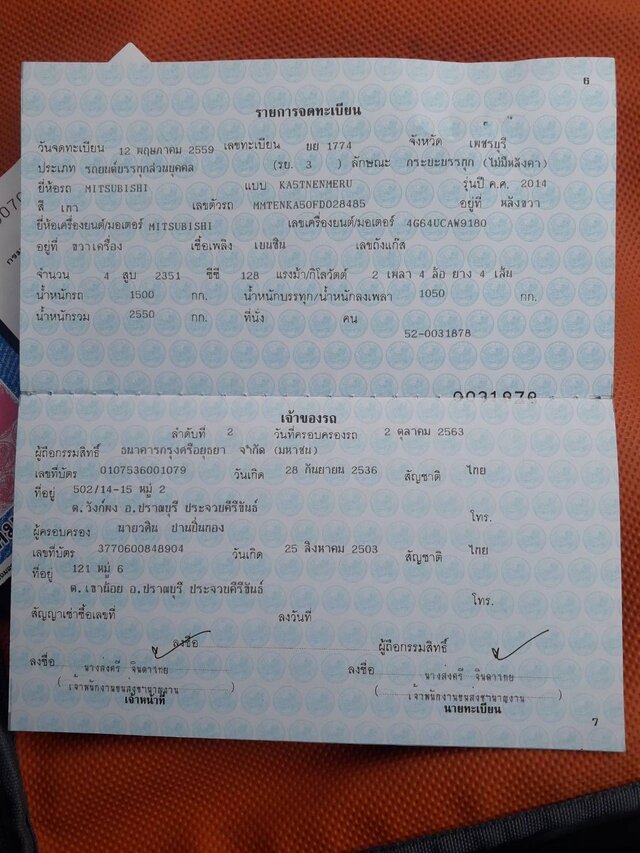 6
รายการจดทะเบียน
วันจดทะเบียน 12 พฤษภาคม 2559 เลขทะเบียน ยย 1774 จังหวัด เพชรบุรี
ประเภท รถยนต์บรรทุกส่วนบุคคล (รย. 3 ) ลักษณะ กระบะบรรทุก (ไม่มีหลังคา)
ยี่ห้อรถ MITSUBISHI แบบ KA5TNENMERU รุ่นปี ค.ศ. 2014
สี เทา เลขตัวรถ MMTENKA50FD028485 อยู่ที่ หลังขวา
ยี่ห้อเครื่องยนต์/มอเตอร์ MITSUBISHI เลขเครื่องยนต์/มอเตอร์ 4G64UCAW9180
อยู่ที่ ขวาเครื่อง เชื้อเพลิง เบนซิน เลขถังแก๊ส
จำนวน 4 สูบ 2351 ซีซี 128 แรงม้า/กิโลวัตต์ 2 เพลา 4 ล้อ ยาง 4 เส้น
น้ำหนักรถ 1500 กก. น้ำหนักบรรทุก/น้ำหนักลงเพลา 1050 กก.
น้ำหนักรวม 2550 กก. ที่นั่ง คน
52-0031878
0031878
เจ้าของรถ
ลำดับที่ 2 วันที่ครอบครองรถ 2 ตุลาคม 2563
ผู้ถือกรรมสิทธิ์ ธนาคารกรุงศรีอยุธยา จำกัด (มหาชน)
เลขที่บัตร 0107536001079 วันเกิด 28 กันยายน 2536 สัญชาติ ไทย
ที่อยู่ 502/14-15 หมู่ 2
ต.วังก์พง อ.ปราณบุรี ประจวบคีรีขันธ์
โทร.
ผู้ครอบครอง นายวศิน ปานปิ่นทอง
เลขที่บัตร 3770600848904 วันเกิด 25 สิงหาคม 2503 สัญชาติ ไทย
ที่อยู่ 121 หมู่ 6
ต.เขาน้อย อ.ปราณบุรี ประจวบคีรีขันธ์
โทร.
สัญญาเช่าซื้อเลขที่ ลงวันที่
ลงชื่อ ผู้ถือกรรมสิทธิ์
ลงชื่อ นางสงศรี จินดาไทย ลงชื่อ นางสงศรี จินดาไทย
(เจ้าพนักงานขนส่งชำนาญงาน) (เจ้าพนักงานขนส่งชำนาญงาน)
เจ้าหน้าที่ นายทะเบียน
7